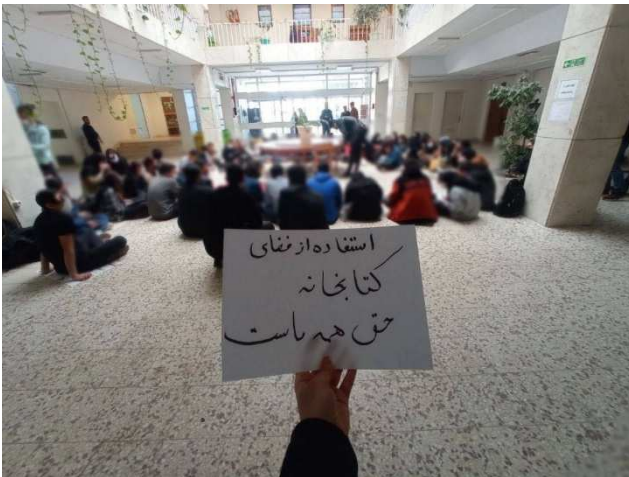 استفاده از فضای
کتابخانه
حق همه ماست